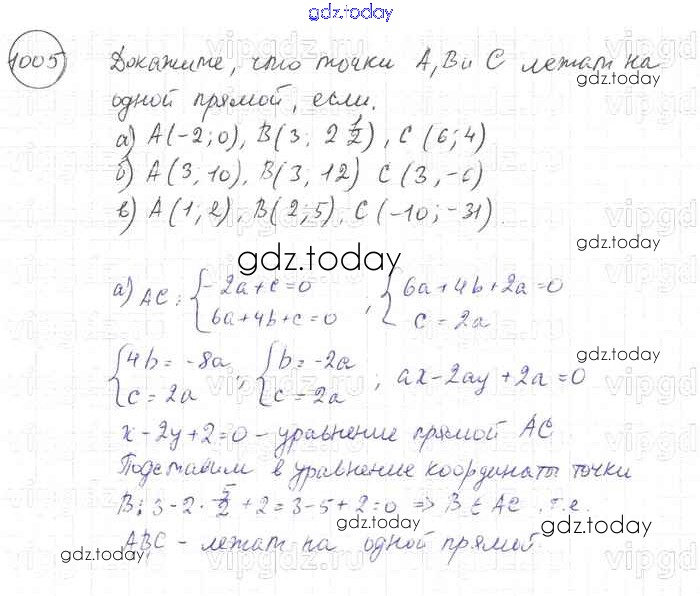 gdz.today
1005 Докажите, что точки A, B и C лежат на
одной прямой, если.
а) A(-2; 0), B(3; 2 1/2), C(6; 4)
б) A(3, 10), B(3, 12) C(3, -6)
в) A(1; 2), B(2; 5), C(-10; -31)
gdz.today
gdz.today
а) AC: { -2a+c=0 ; 6a+4b+c=0 ; { 6a+4b+2a=0 ; c=2a
gdz.today
{ 4b=-8a ; c=2a ; { b=-2a ; c=2a ; ax-2ay+2a=0
gdz.today
x-2y+2=0 - уравнение прямой AC
Подставим в уравнение координаты точки
B: 3-2·5/2+2=3-5+2=0 => B ∈ AC, т.е.
gdz.today
gdz.today
A,B,C - лежат на одной прямой.
gdz.today